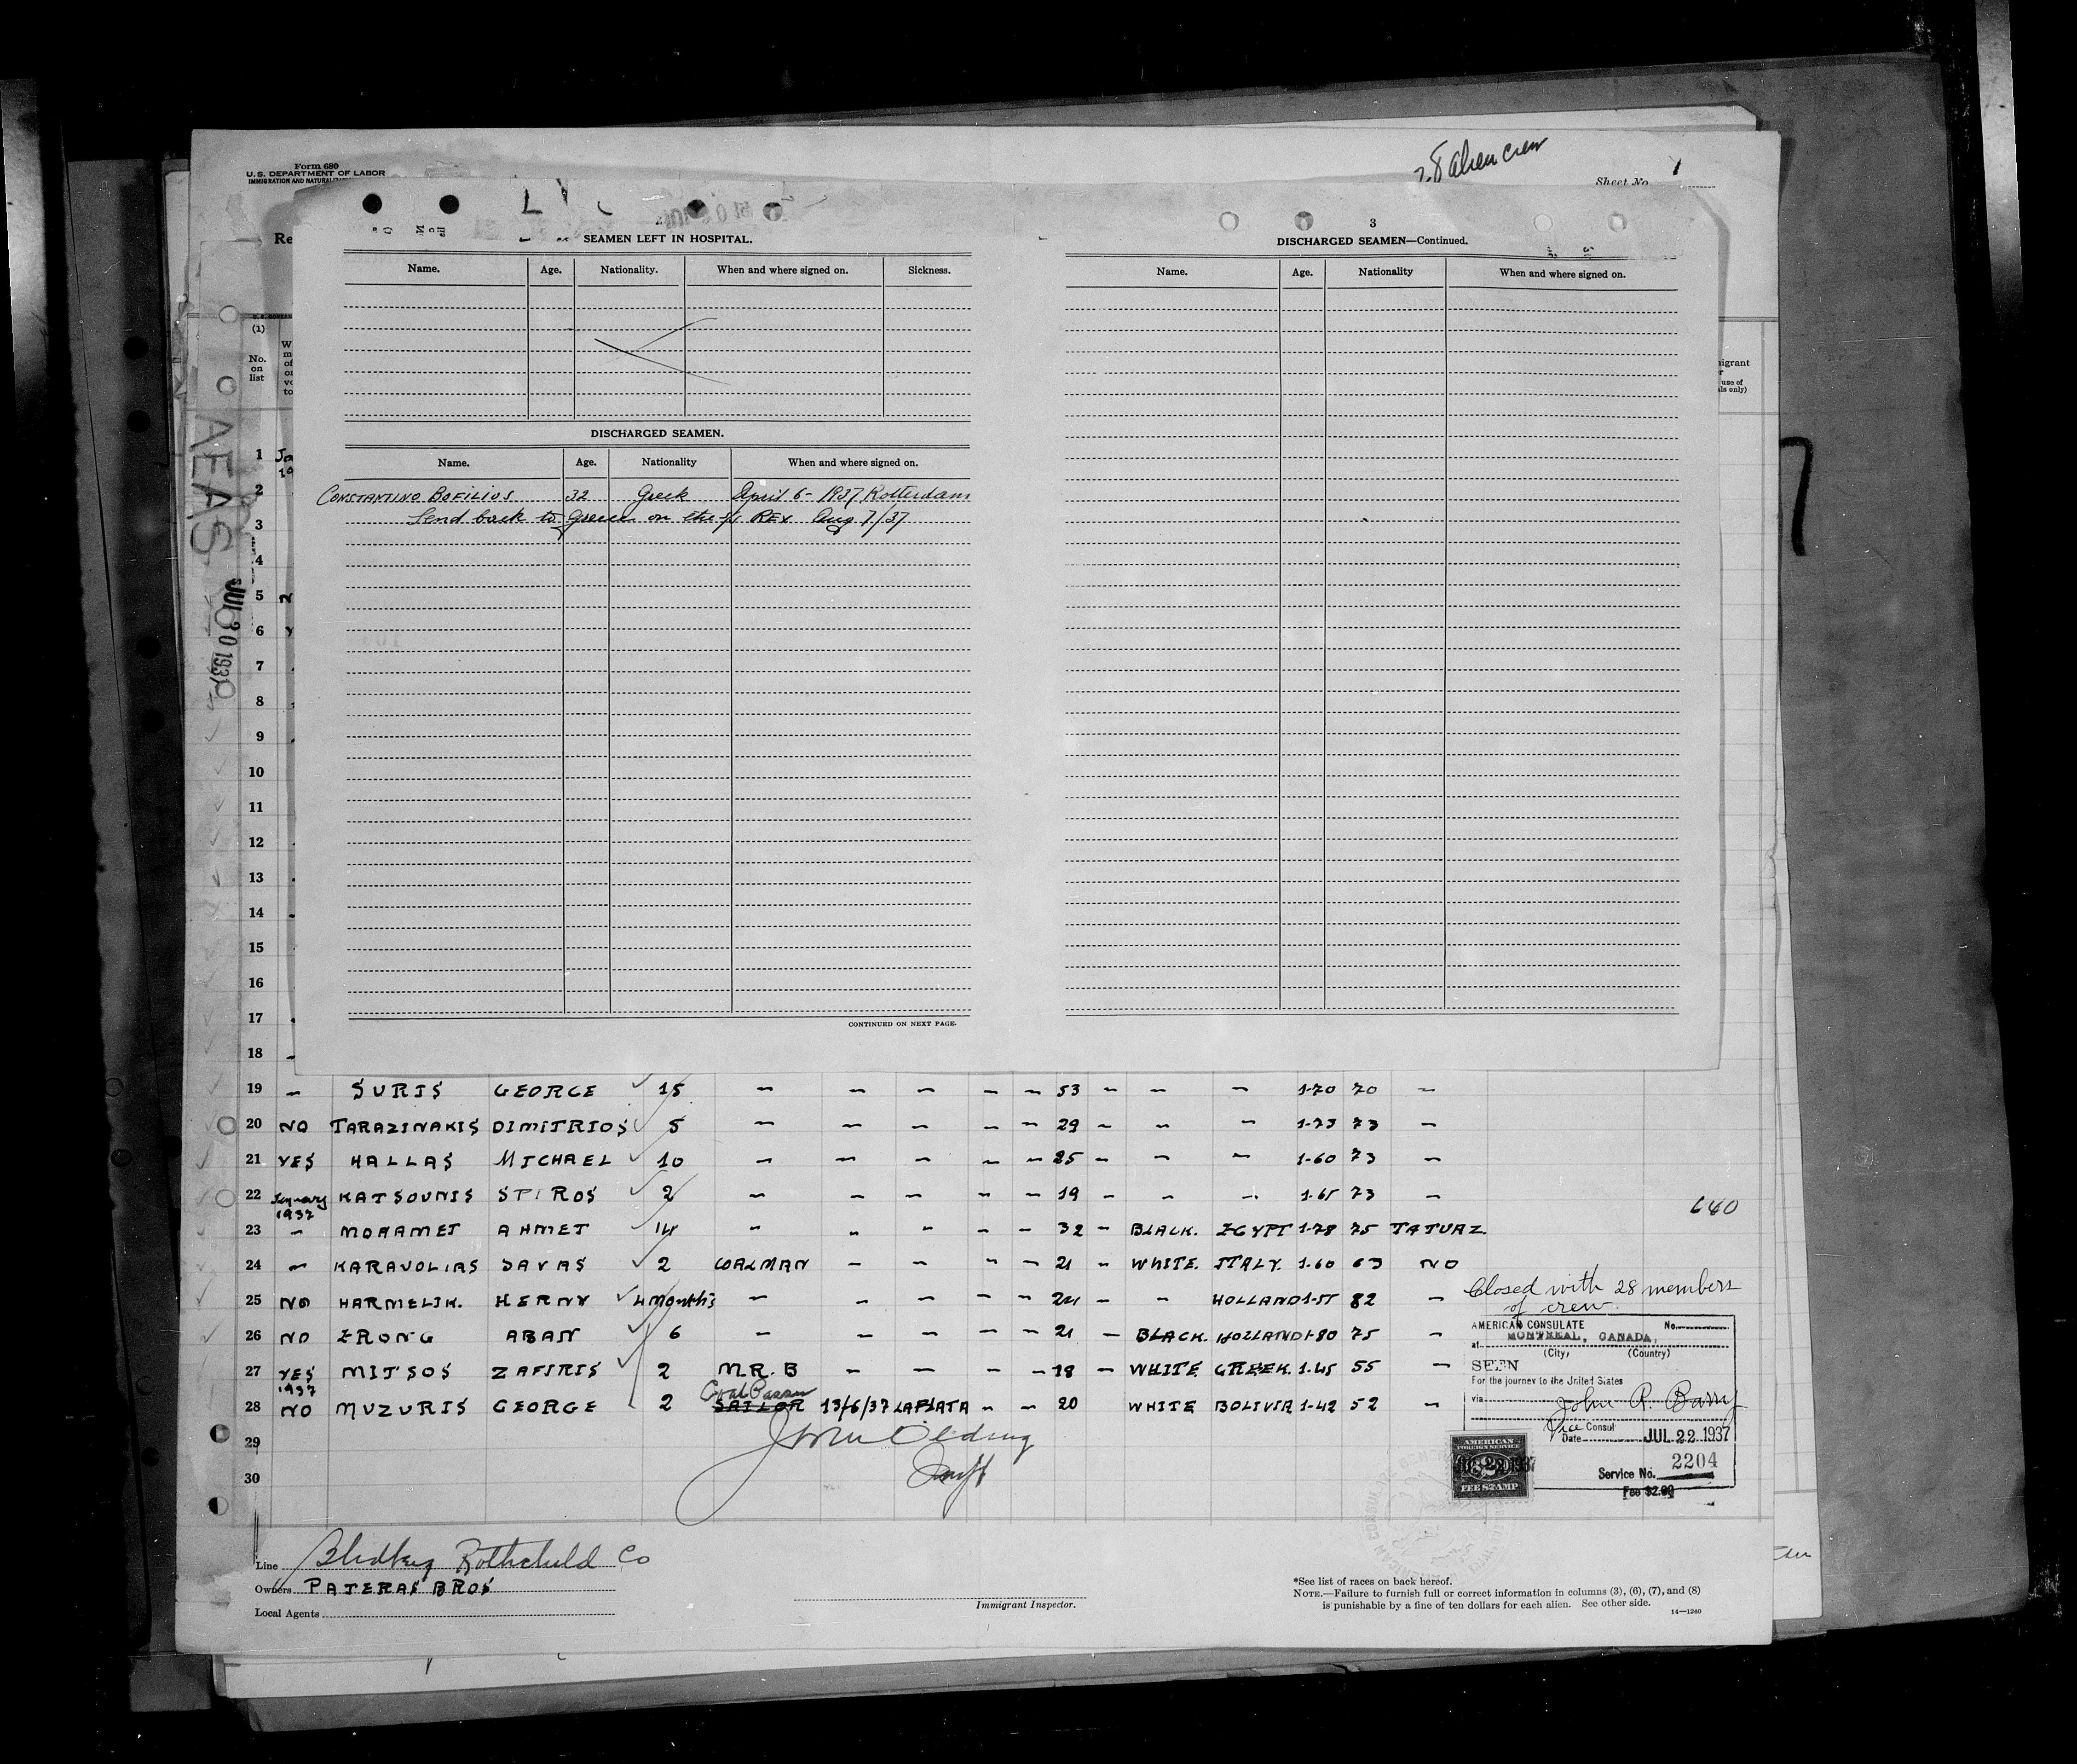 Form 680
U.S. DEPARTMENT OF LABOR
28 alien crew
Sheet No. 1
2
SEAMEN LEFT IN HOSPITAL.
Name. Age. Nationality. When and where signed on. Sickness.
DISCHARGED SEAMEN.
Name. Age. Nationality When and where signed on.
CONSTANTINO BOFILIOS 32 Greek April 6 - 1937 Rotterdam
Send back to Greece on the s/s REX Aug 7/37
CONTINUED ON NEXT PAGE.
3
DISCHARGED SEAMEN—Continued.
Name. Age. Nationality When and where signed on.
(1)
No.
on
list
AEAS
JUL 30 1937
1
2
3
4
5
6
7
8
9
10
11
12
13
14
15
16
17
18
19 – SURIS GEORGE 15 – – – – – 53 – – – 1-70 70 –
20 NO TARAZINAKIS DIMITRIOS 5 – – – – – 29 – – – 1-73 73 –
21 YES HALLAS MICHAEL 10 – – – – – 25 – – – 1-60 73 –
22 January 1937 KATSOUNIS SPIROS 2 – – – – – 19 – – – 1-65 73 –
640
23 – MOHAMET AHMET 14 – – – – – 32 – BLACK. EGYPT 1-78 75 TATUAZ.
24 – KARAVOLIAS SAVAS 2 COALMAN – – – – 21 – WHITE. ITALY. 1-60 63 NO
25 NO HARMELIK. HERNY 4 months – – – – – 24 – – HOLLAND 1-55 82 –
26 NO ERONG ABAN 6 – – – – – 21 – BLACK. HOLLAND 1-80 75 –
27 YES 1937 MITSOS ZAFIRIS 2 M.R.B – – – – 18 – WHITE GREEK. 1-45 55 –
28 NO MUZURIS GEORGE 2 Coal Passer SAILOR 13/6/37 LAPLATA – – 20 WHITE BOLIVIA 1-42 52 –
29
30
Closed with 28 members
of crew.
AMERICAN CONSULATE No.
at MONTREAL, CANADA,
(City) (Country)
SEEN
For the journey to the United States
via
John R. Barry
Vice Consul
Date JUL 22 1937
Service No. 2204
Fee $2.00
AMERICAN
FOREIGN SERVICE
FEE STAMP
Line Rothchild Co
Owners PATERAS BROS
Local Agents
Immigrant Inspector.
*See list of races on back hereof.
NOTE.—Failure to furnish full or correct information in columns (3), (6), (7), and (8)
is punishable by a fine of ten dollars for each alien. See other side.
14—1240